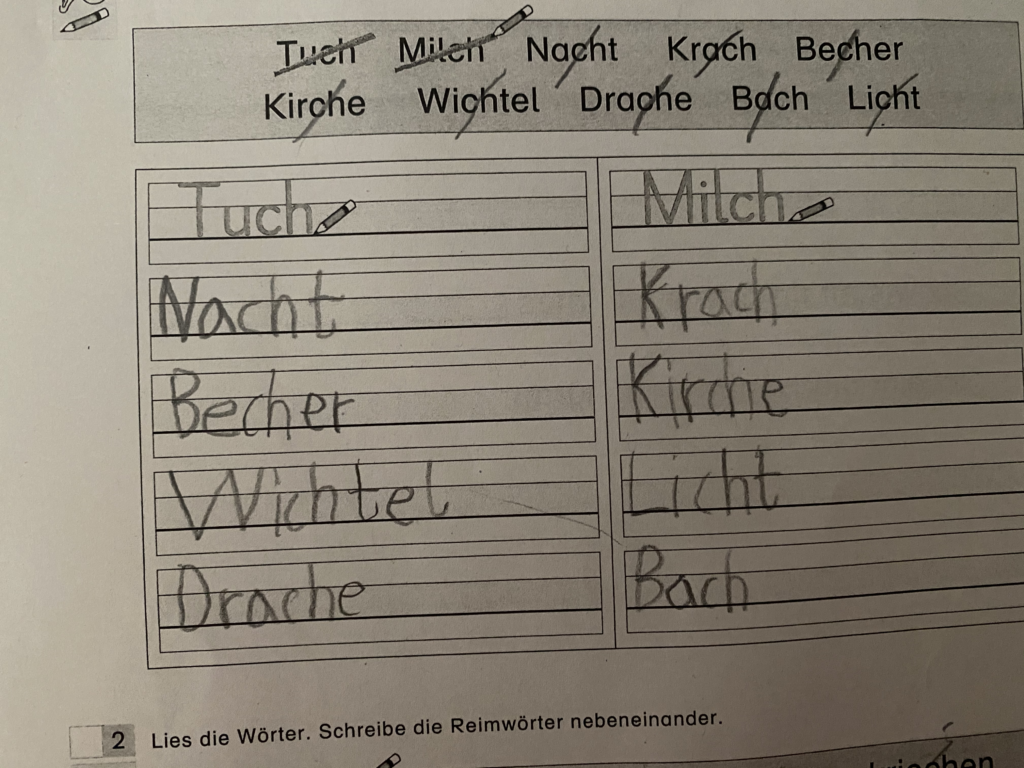 Tuch Milch Nacht Krach Becher
Kirche Wichtel Drache Bach Licht
Tuch Milch
Nacht Krach
Becher Kirche
Wichtel Licht
Drache Bach
2 Lies die Wörter. Schreibe die Reimwörter nebeneinander.